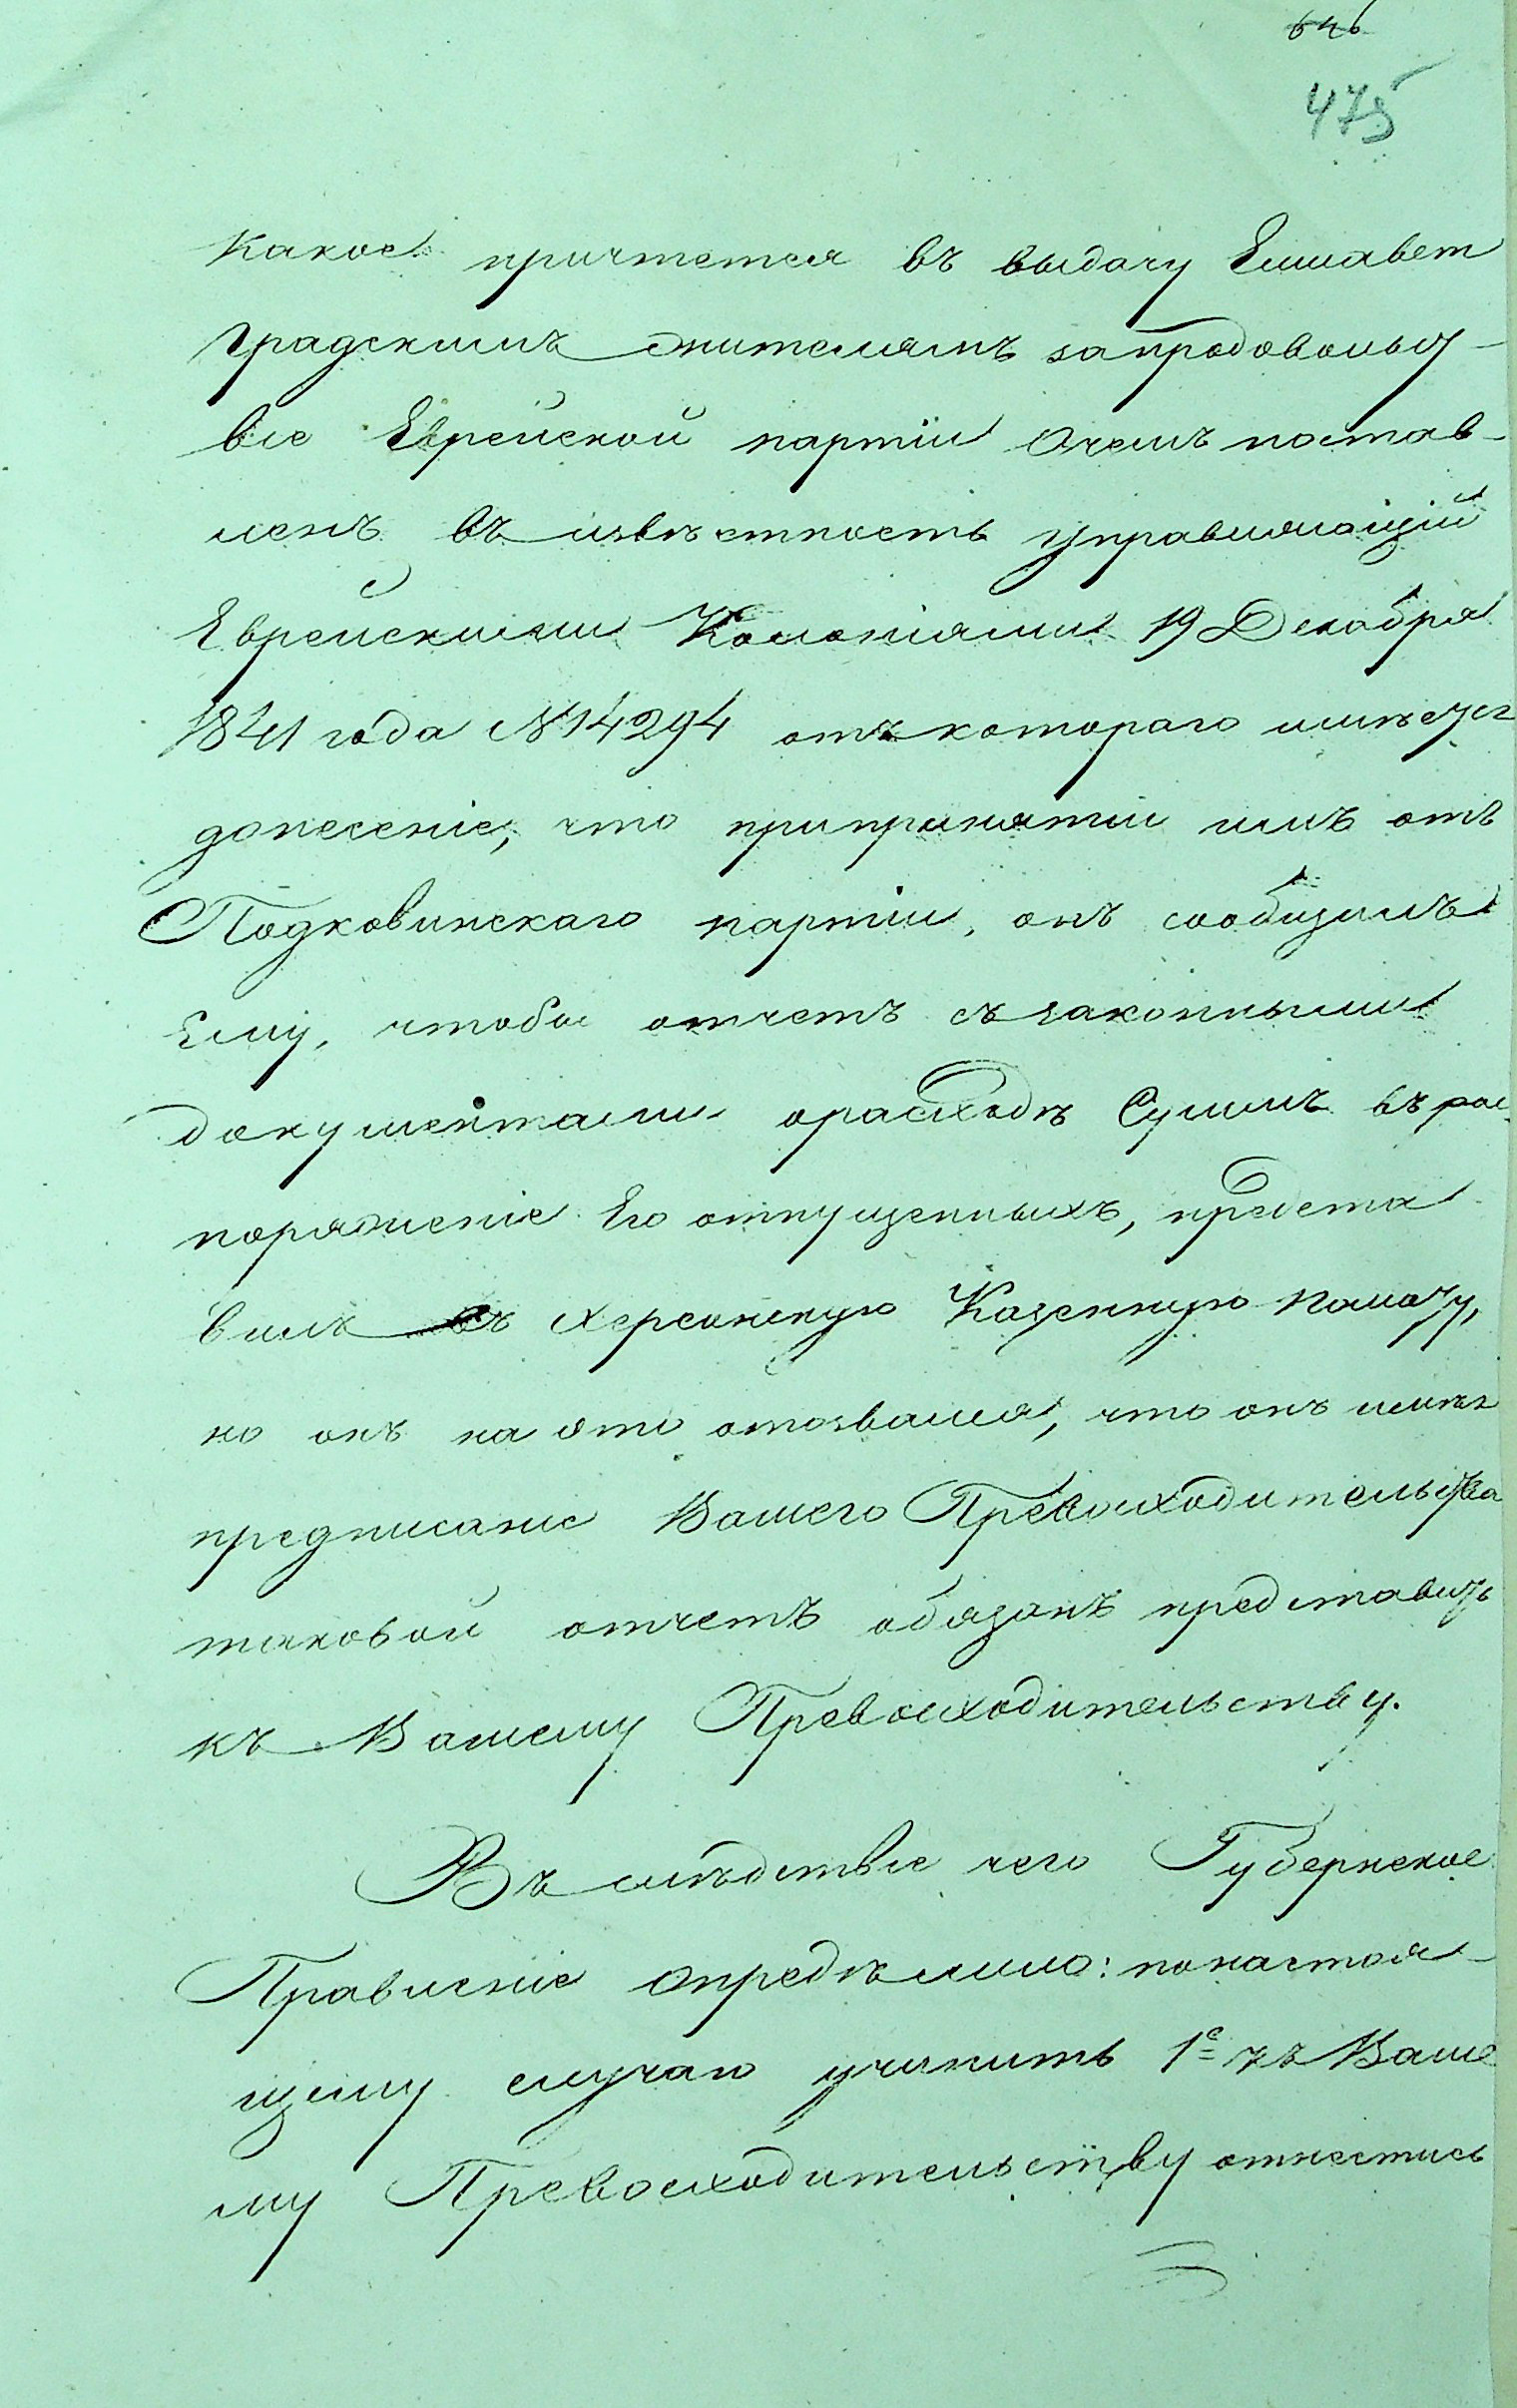 646
475
Какое причтется въ выдачу Елисавет
градскимъ жителямъ за продовольст-
вiе Еврейской партiи о чемъ постав-
ленъ въ извѣстность управляющiй
Еврейскими Колонiями 19 Декабря
1841 года № 14294 отъ котораго имѣется
донесенiе, что при принятiи имъ отъ
Подковинскаго партiи, онъ сообщилъ
Ему, чтобы отчетъ съ законными
документами о расходѣ Суммъ въ рас
поряженiе Его отпущенныхъ, предста
вилъ въ Херсонскую Казенную палату,
но онъ на это отозвался, что онъ имѣя
предписанiе Вашего Превосходительства
таковой отчетъ обязанъ представить
къ Вашему Превосходительству.
Въ слѣдствiе чего Губернское
Правленiе опредѣлило: по настоя-
щему случаю учинить 1е къ Ваше
му Превосходительству отнестись